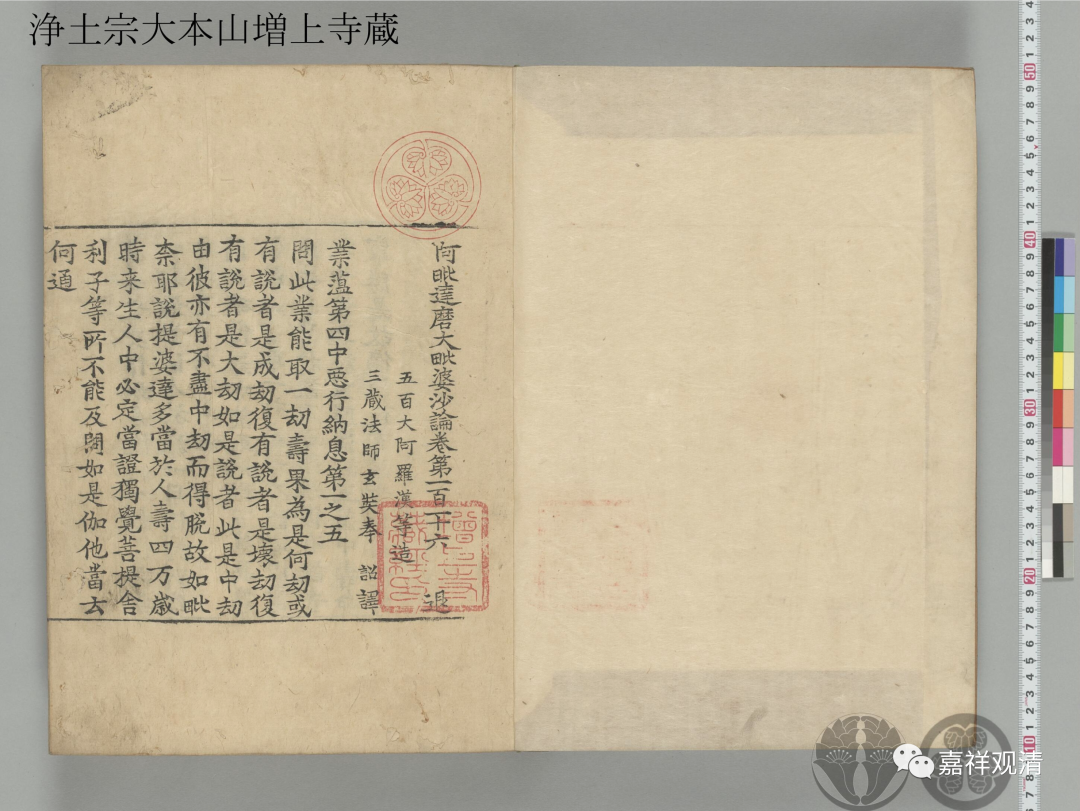 浄土宗大本山増上寺蔵
阿毗達磨大毗婆沙論卷第一百一十六 退
五百大阿羅漢等造
三藏法師玄奘奉 詔譯
業薀第四中惡行納息第一之五
問此業能取一劫壽果為是何劫或
有說者是成劫復有說者是壞劫復
有說者是大劫如是說者此是中劫
由彼亦有不盡中劫而得脫故如毗
柰耶說提婆達多當於人壽四万歲
時来生人中必定當證獨覺菩提舍
利子等所不能及問如是伽他當云
何通
增上寺
藏經印
嘉祥观清